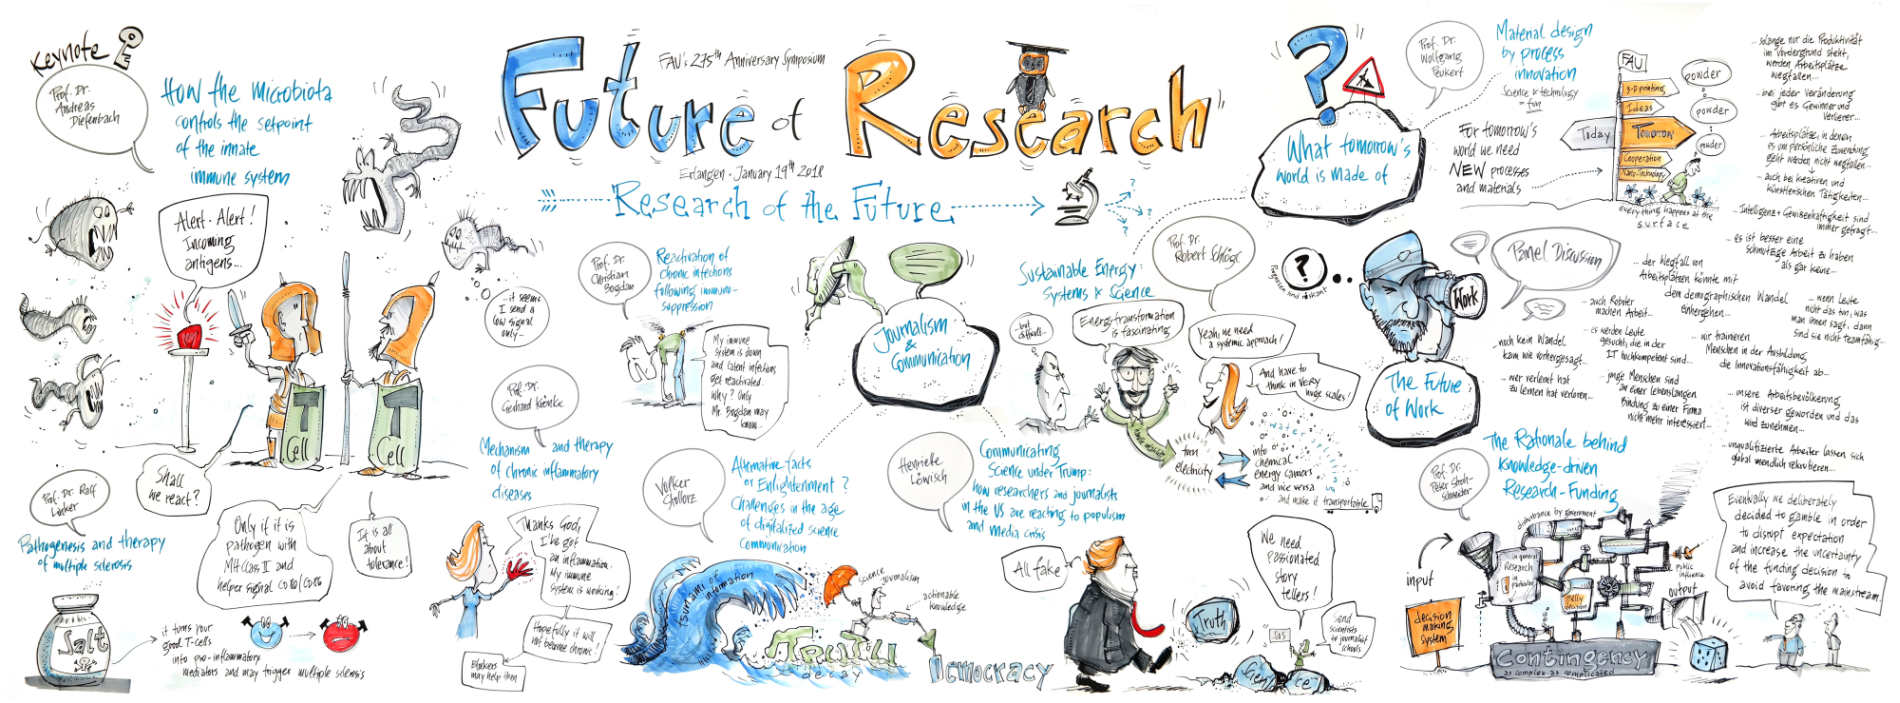 Keynote
Prof. Dr.
Andreas
Diefenbach
How the microbiota
controls the setpoint
of the innate
immune system
Alert - Alert!
Incoming
antigens...
it seems
I send a
low signal
only...
T
Cell
T
Cell
Shall
we react?
Prof. Dr. Ralf
Linker
Pathogenesis and therapy
of multiple sclerosis
Only if it is
pathogen with
MHC class II and
helper signal
It is all
about
tolerance!
Salt
it turns your
good T-cells
into pro-inflammatory
mediators and may trigger multiple sclerosis
FAU's 275th Anniversary Symposium
Future of Research
Erlangen - January 19th 2018
Research of the Future
?
?
?
Prof. Dr.
Christian
Bogdan
Reactivation of
chronic infections
following immuno-
suppression
My immune
system is down
and latent infections
get reactivated.
Why? Only
Mr. Bogdan may
know...
Prof. Dr.
Gerhard Krönke
Mechanism and therapy
of chronic inflammatory
diseases
Thanks God,
I've got
an inflammation.
My immune
system is working!
Hopefully it will
not become chronic!
Blockers
may help then
Journalism
&
Communication
Volker
Stollorz
Alternative facts
or Enlightenment?
Challenges in the age
of digitalized science
communication
Tsunami of
information
science
journalism
actionable
knowledge
Truth
decay
Democracy
Henriette
Löwisch
Communicating
Science under Trump:
how researchers and journalists
in the US are reacting to populism
and media crisis
All fake
Truth
We need
passionated
story
tellers!
SOS
Send
scientists
to journalist
schools
Science
Sustainable Energy:
Systems & Science
Prof. Dr.
Robert Schlögl
...but
difficult...
Energy transformation
is fascinating
Yeah, we need
a systemic approach!
And have to
think in very
huge scales!
water
turn
electricity
into
chemical
energy carriers
and vice versa
and make it transportable
?
What tomorrow's
world is made of
Prof. Dr.
Wolfgang
Peukert
Material design
by process
innovation
Science & technology
= fun
For tomorrow's
world we need
NEW processes
and materials
FAU
3-D printing
Ideas
Today
Tomorrow
Cooperation
Nano-Technology
powder
powder
powder
everything happens at the
surface
?
Work
The Future
of Work
Panel Discussion
...solange nur die Produktivität
im Vordergrund steht,
werden Arbeitsplätze
wegfallen...
...bei jeder Veränderung
gibt es Gewinner und
Verlierer...
...Arbeitsplätze, in denen
es um persönliche Zuwendung
geht werden nicht wegfallen...
...auch bei kreativen und
künstlerischen Tätigkeiten...
...Intelligenz & Gewissenhaftigkeit sind
immer gefragt...
...es ist besser eine
schmutzige Arbeit zu haben
als gar keine...
...der Wegfall von
Arbeitsplätzen könnte mit
dem demographischen Wandel
einhergehen...
...auch Roboter
machen Arbeit...
...wenn Leute
nicht das tun, was
man ihnen sagt, dann
sind sie nicht teamfähig...
...noch kein Wandel
kam wie vorhergesagt...
...es werden Leute
gesucht, die in der
IT hochkompetent sind...
...wir trainieren
Menschen in der Ausbildung
die Innovationsfähigkeit ab...
...wer verlernt hat
zu lernen hat verloren...
...junge Menschen sind
an einer lebenslangen
Bindung zu einer Firma
nicht mehr interessiert...
...unsere Arbeitsbevölkerung
ist diverser geworden und das
wird zunehmen...
...unqualifizierte Arbeiter lassen sich
global unendlich rekrutieren...
Prof. Dr.
Peter Stroh-
schneider
The Rationale behind
Knowledge-driven
Research-Funding
disturbance by government
input
in general
Research
in particular
public
influence
output
decision
making
system
Contingency
as complex as complicated
Eventually we deliberately
decided to gamble in order
to disrupt expectation
and increase the uncertainty
of the funding decision to
avoid favoring the mainstream.